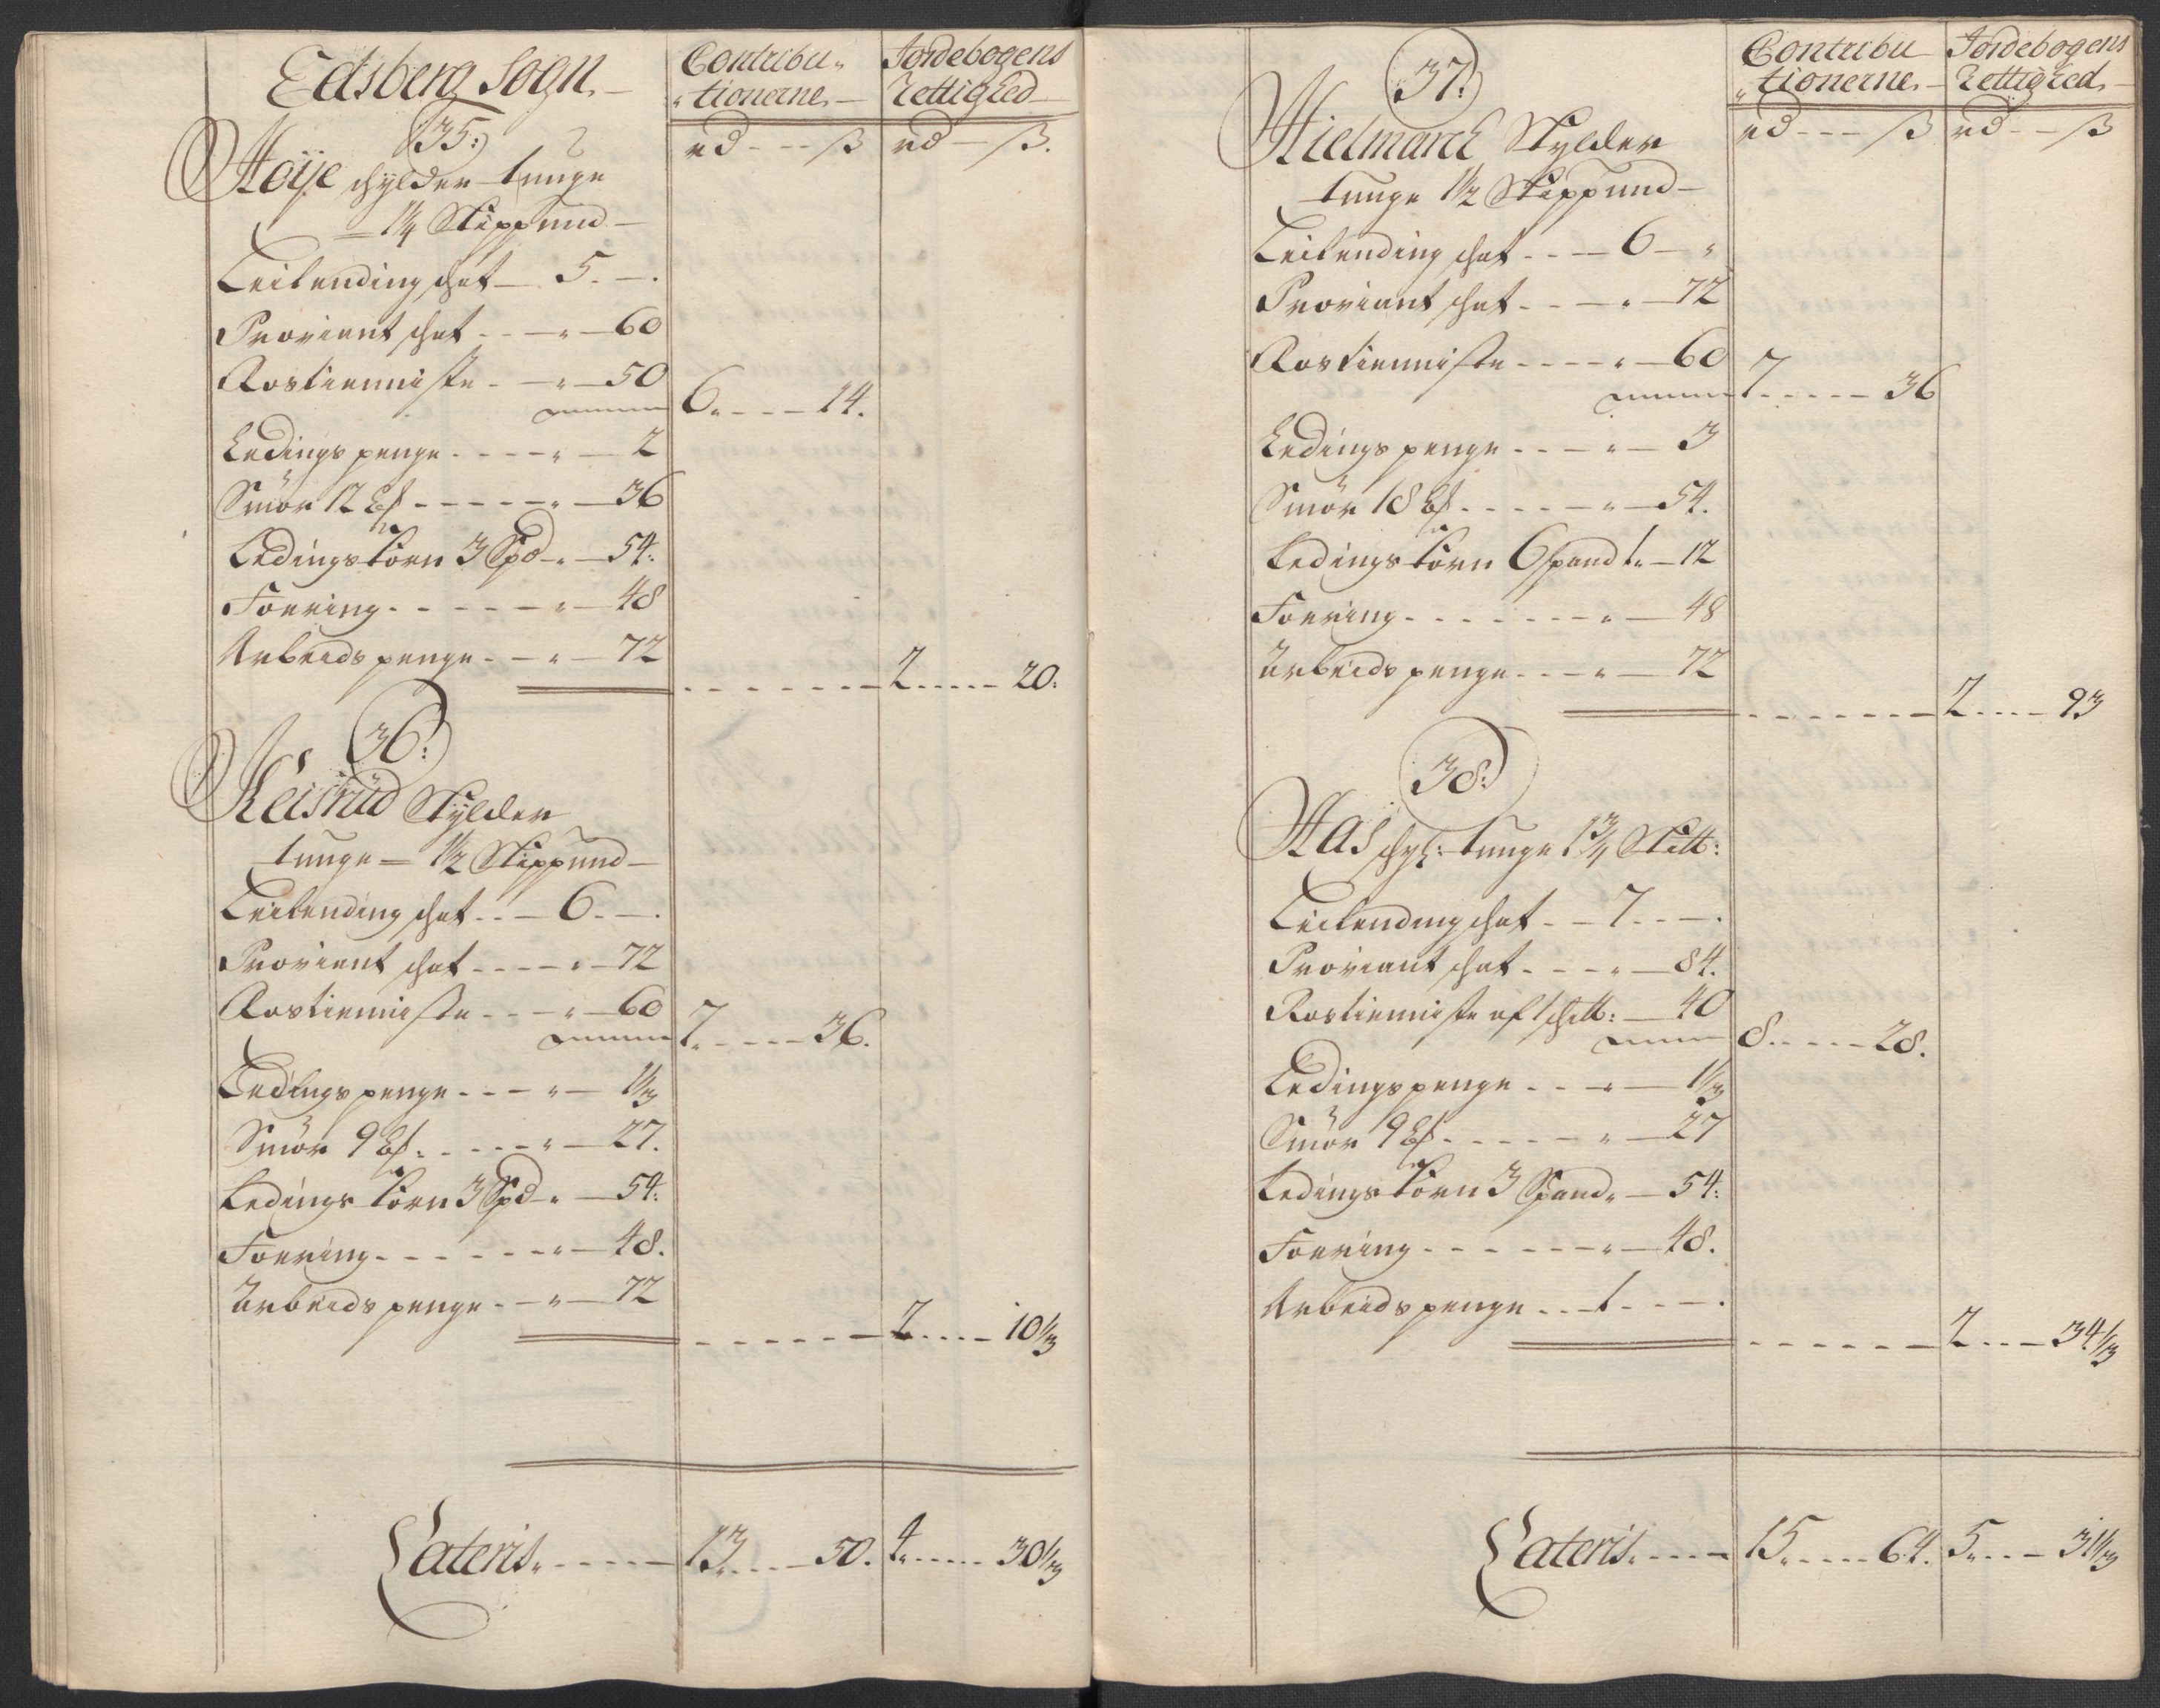 Edsberg Sogn.
Contribu-
tionerne.
Jordebogens
Rettighed
rd --- ß
rd — ß.
35:
Høÿe schylder tunge
1¼ Skippund
Leilending schat 5. —.
Proviant schat - - - „ 60
Rostienniste - „ 50
6. - - - 14.
Ledings penge - - - - „ 2
Smör 12 ℔ - - - - - „ 36
Ledings korn 3 Spd „ 54:
Foering - - - - - - „ 48
Arbeids penge - - „ 72
- - - - - - - 2 - - - - 20:
36:
Keisrud Skylder
tunge 1½ Skippund
Leilending schat - - 6. —.
Proviant schat - - - - „ 72
Rostienniste - - - „ 60
7. - - - - 36.
Ledings penge - - - „ 1⅓
Smör 9 ℔ - - - - - „ 27.
Ledings korn 3 Spd „ 54:
Foering - - - - - - „ 48.
Arbeids penge - - „ 72
- - - - - - 2 - - - - 10⅓
Lateris - - - - - 13. - - - 50. 4. - - - - 30⅓
Contribu
tionerne.
Jordebogens
Rettighed
rd --- ß
rd -- ß
37:
Hielmarck Skylder
tunge 1½ Skippund
Leilending schat - - - 6 — „
Proviant schat - - - „ 72
Rostienniste - - - - „ 60
7 - - - - - 36
Ledings penge - - - „ 3
Smör 18 ℔ - - - - - „ 54.
Ledings korn 6 spand 1. 12
Foering - - - - - - - „ 48
Arbeids penge - - - „ 72
- - - - - - 2 - - - - 93
38:
Aas schyl: tunge 1¾ Skill:
Leilending schat - - 7. - - —.
Proviant schat - - - „ 84.
Rostienniste af 1 schill: 40
8. - - - - 28.
Ledings penge - - - „ 1⅓
Smör 9 ℔ - - - - - „ 27
Ledings korn 3 Spand „ 54:
Foering - - - - - - „ 48.
Arbeids penge - - 1 - - —.
- - - - - - 2 - - - 34⅓
Lateris - - - - 15. - - - - 64. 5. - - - 31⅓